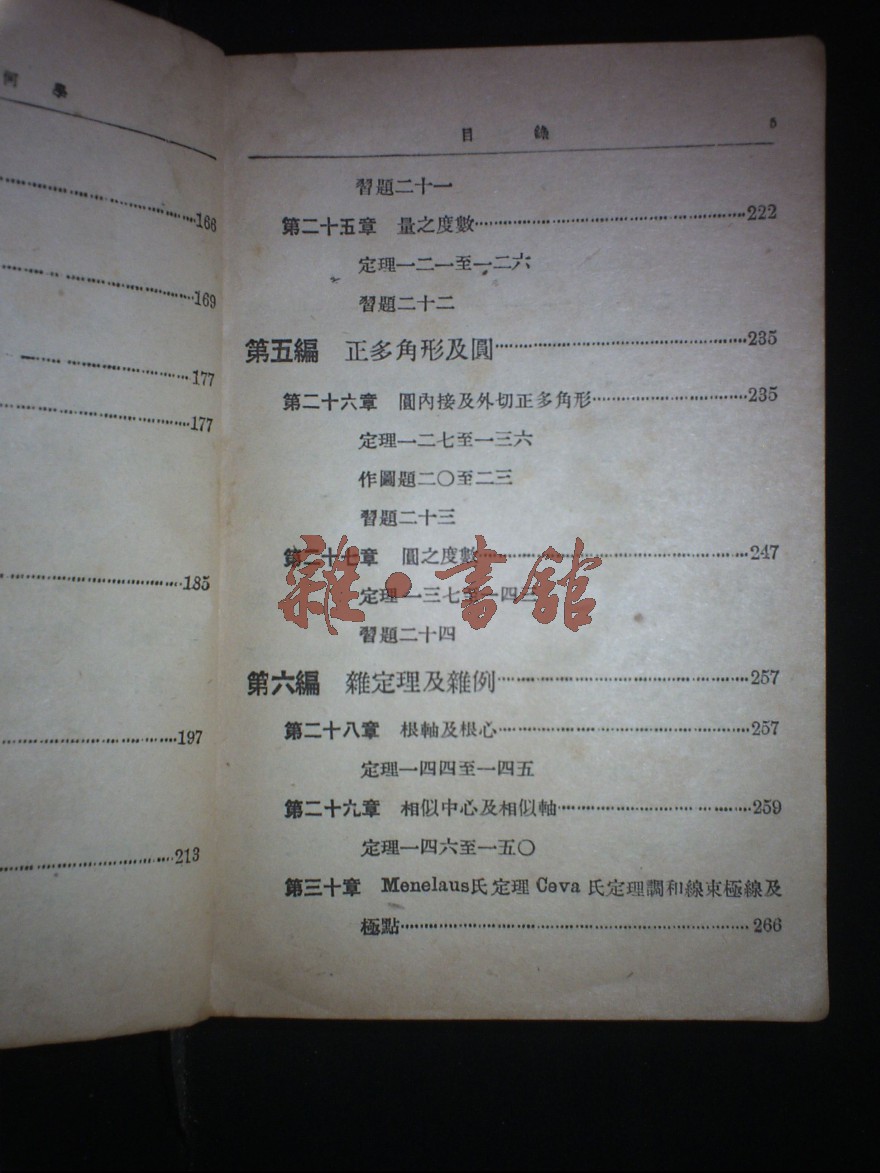 何 學
168
169
177
177
185
197
213
目 錄 5
習題二十一
第二十五章 量之度數……222
定理一二一至一二六
習題二十二
第五編 正多角形及圓……235
第二十六章 圓內接及外切正多角形……235
定理一二七至一三六
作圖題二〇至二三
習題二十三
第二十七章 圓之度數……247
定理一三七至一四三
習題二十四
雜·書館
第六編 雜定理及雜例……257
第二十八章 根軸及根心……257
定理一四四至一四五
第二十九章 相似中心及相似軸……259
定理一四六至一五〇
第三十章 Menelaus氏定理 Ceva 氏定理調和線束極線及
極點……266